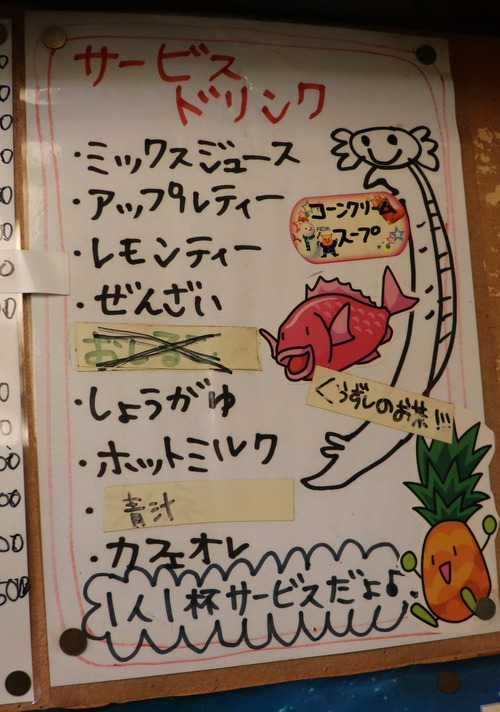 サービス
ドリンク
・ミックスジュース
・アップルティー
・レモンティー
コーンクリーム
FROM
スープ
・ぜんざい
おしるこ
くぅずしのお茶!!!
・しょうがゆ
・ホットミルク
・青汁
・カフェオレ
1人1杯サービスだよ♪